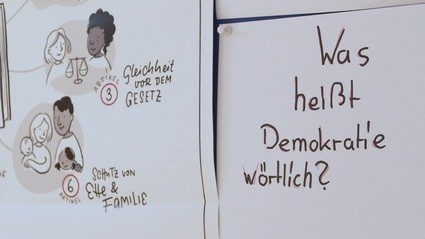 ARTIKEL
3
Gleichheit
VOR DEM
GESETZ
6
ARTIKEL
SCHUTZ VON
EHE &
FAMILIE
Was
heißt
Demokratie
wörtlich?